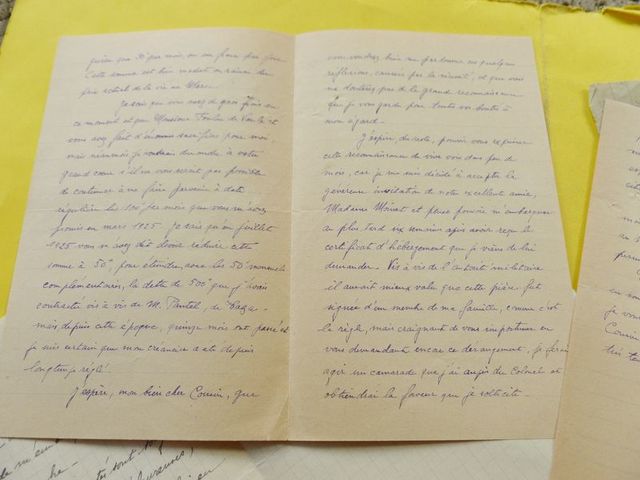 que 50f par mois, ou un franc par jour
Cette somme est bien modeste en raison du
prix actuel de la vie au Maroc.
Je sais que vous avez de gros frais en
ce moment et que Monsieur
vous avez fait d'énormes sacrifices pour moi,
mais néanmoins je voudrais demander à votre
grand cœur s'il ne vous serait pas possible
de continuer à me faire parvenir à date
régulière les 100f par mois que vous m'avez
promis en mars 1925. Je sais qu'en juillet
1925 vous m'avez dit devoir réduire cette
somme à 50f, pour éteindre, avec les 50f mensuels
complémentaires, la dette de 500f que j'avais
contractée vis à vis de M. Pantel, de
mais depuis cette époque, quinze mois ont passé et
je suis certain que mon créancier a été depuis
longtemps réglé.
J'espère, mon bien cher Cousin, que
vous voudrez bien me pardonner ces quelques
réflexions, causées par la nécessité, et que vous
ne doutez pas de la grande reconnaissance
que je vous garde pour toutes vos bontés à
mon égard.
J'espère, du reste, pouvoir vous exprimer
cette reconnaissance de vive voix dans peu de
mois, car je me suis décidé à accepter la
généreuse invitation de notre excellente amie,
Madame et pense pouvoir m'embarquer
au plus tard six semaines après avoir reçu le
certificat d'hébergement que je viens de lui
demander. Vis à vis de l'autorité militaire
il aurait mieux valu que cette pièce fut
signée d'un membre de ma famille, comme c'est
la règle, mais craignant de vous importuner en
vous demandant encore ce dérangement, je ferai
agir un camarade que j'ai auprès du Colonel et
obtiendrai la faveur que je sollicite.